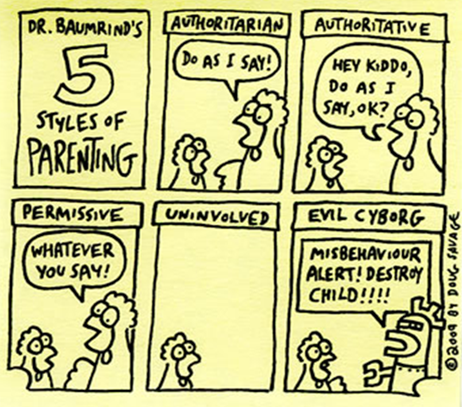 DR. BAUMRIND'S
5
STYLES OF
PARENTING
AUTHORITARIAN
DO AS I SAY!
AUTHORITATIVE
HEY KIDDO,
DO AS I
SAY, OK?
PERMISSIVE
WHATEVER
YOU SAY!
UNINVOLVED
EVIL CYBORG
MISBEHAVIOUR
ALERT! DESTROY
CHILD!!!!
© 2009 BY DOUG SAVAGE